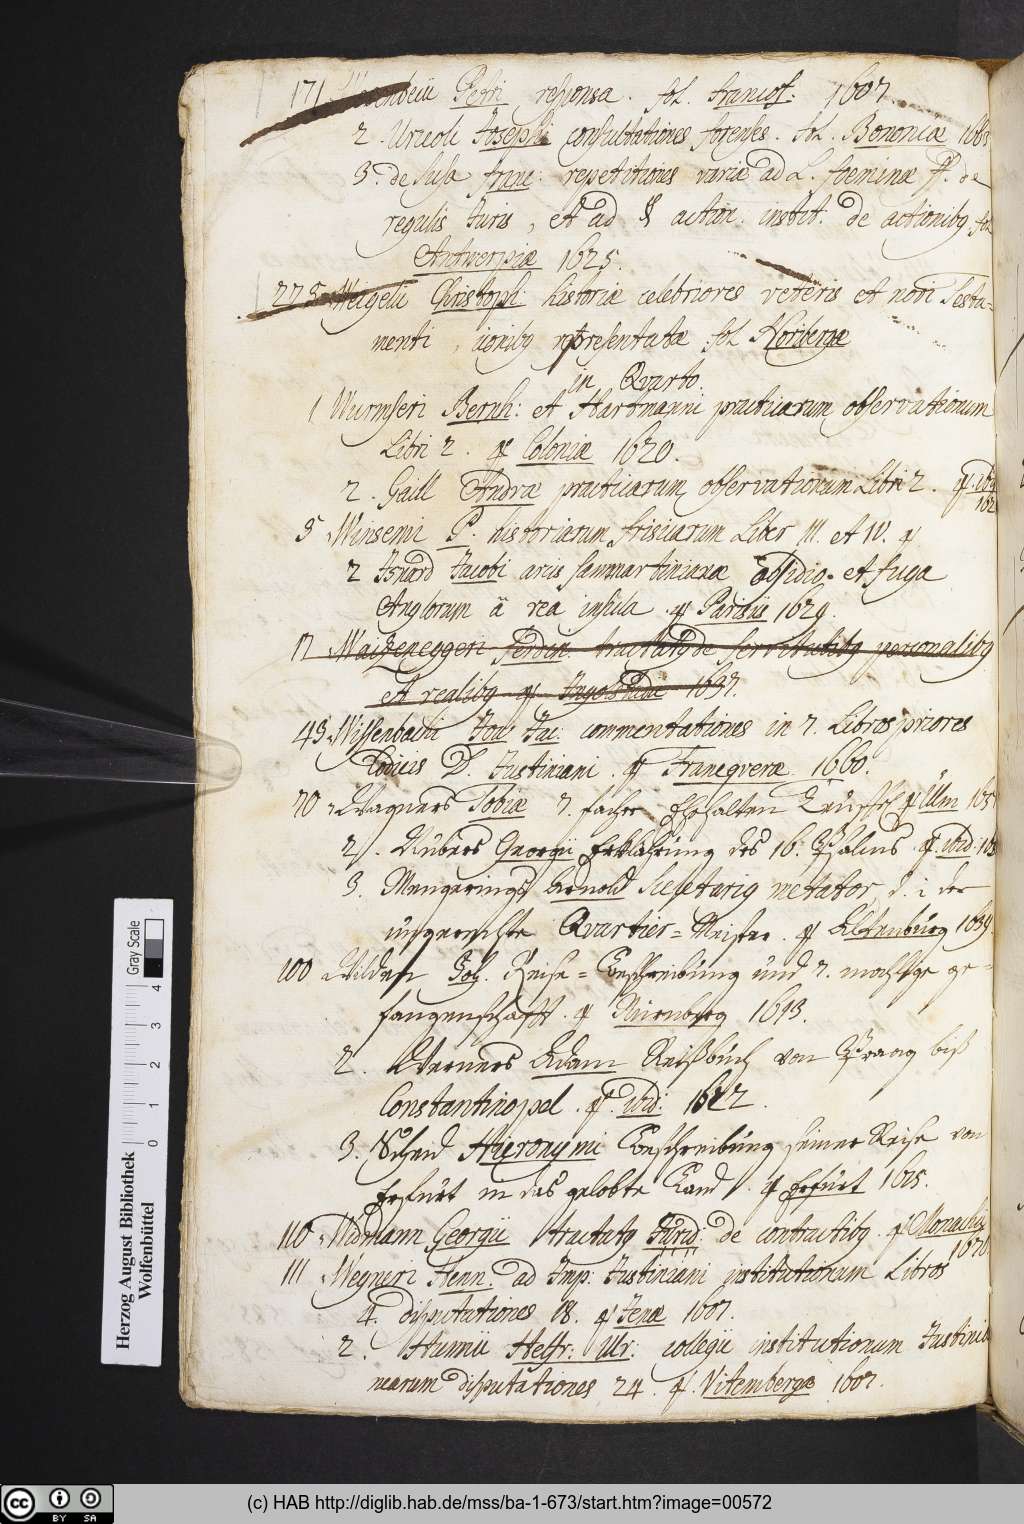 171 Petri responsa. fol. Francof: 1607
2. Urceoli Josephi consultationes forenses. fol. Bononiae
3. de Susa franc: repetitiones variae ad L. foeminae ff. de
regulis Juris, et ad § action. instit. de actionibq fol
Antwerpiae 1625.
275 Weigelii Christophi historiae celebriores veteris et novi Testa=
menti, iconibq repraesentatae fol Noribergae
in Qvarto.
1 Wurmseri Bernh: et Hartmanni practicarum observationum
Libri 2. 4° Coloniae 1620.
2. Gaill Andrae practicarum observationum Libri 2. 4° ibid
162
5 Winsemi P. historiarum frisicarum Liber III. et IV. 4°
2 Isnard Jacobi arcis sammartinianae obsidio et fuga
Anglorum à rea insula 4° Parisiis 1629.
17 Waizeneggeri ferdin tractatq de servitutibq personalibq
et realibq 4° Ingolstadii
43 Wissenbachi Joh: Jac: commentationes in 7. Libros priores
Codicis D. Justiniani. 4° Franeqverae 1660.
70 Wagners Tobiae 7. facher Ehehalten Teuffel 4° Ulm
2. Georgii Erklährung des 16. Psalms 4° ibid:
3. Mengerings Arnold Scelerarig metator, d. i. der
ungerechte Qvartier=Meister. 4° Altenburg 1639.
100 Wilden Joh. Reise=Beschreibung und 7. ge=
fangenschafft. 4° Nürnberg 1613.
2. Werners Adam Reißbuch von Praag biß
Constantinopel. 4° ibid: 1622.
3. Scheid Hieronymi Beschreibung seiner Reise von
Erfurt in das gelobte Land. 4° Erfurt 1615.
110 Widmann Georgii tractatq Jurid: de contractibq. 4° Monachii
1670.
111 Wegneri Henn: ad Imp: Justiniani institutionum Libros
4. disputationes 18. 4° Jenae 1607.
2. Hunnii Helfr: Ulr: collegii institutionum Justinia
nearum disputationes 24. 4° Witembergae 1607.
Herzog August Bibliothek
Wolfenbüttel
Gray Scale
0 1 2 3 4
(c) HAB http://diglib.hab.de/mss/ba-1-673/start.htm?image=00572
CC BY SA